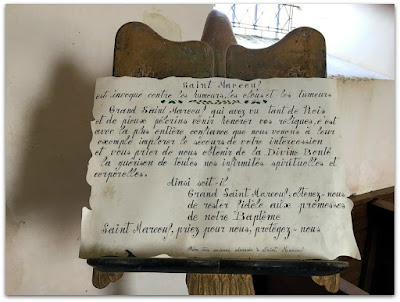 Saint Marcoul
est invoqué contre les tumeurs, les clous et les humeurs
Grand Saint Marcoul qui avez vu tant de Rois
et de pieux pèlerins venir honorer vos reliques, c'est
avec la plus entière confiance que nous venons à leur
exemple implorer le secours de votre intercession
et vous prier de nous obtenir de la Divine Bonté
la guérison de toutes nos infirmités spirituelles et
corporelles.
Ainsi soit-il
Grand Saint Marcoul, obtenez-nous
de rester fidèle aux promesses
de notre Baptême
Saint Marcoul, priez pour nous, protégez-nous